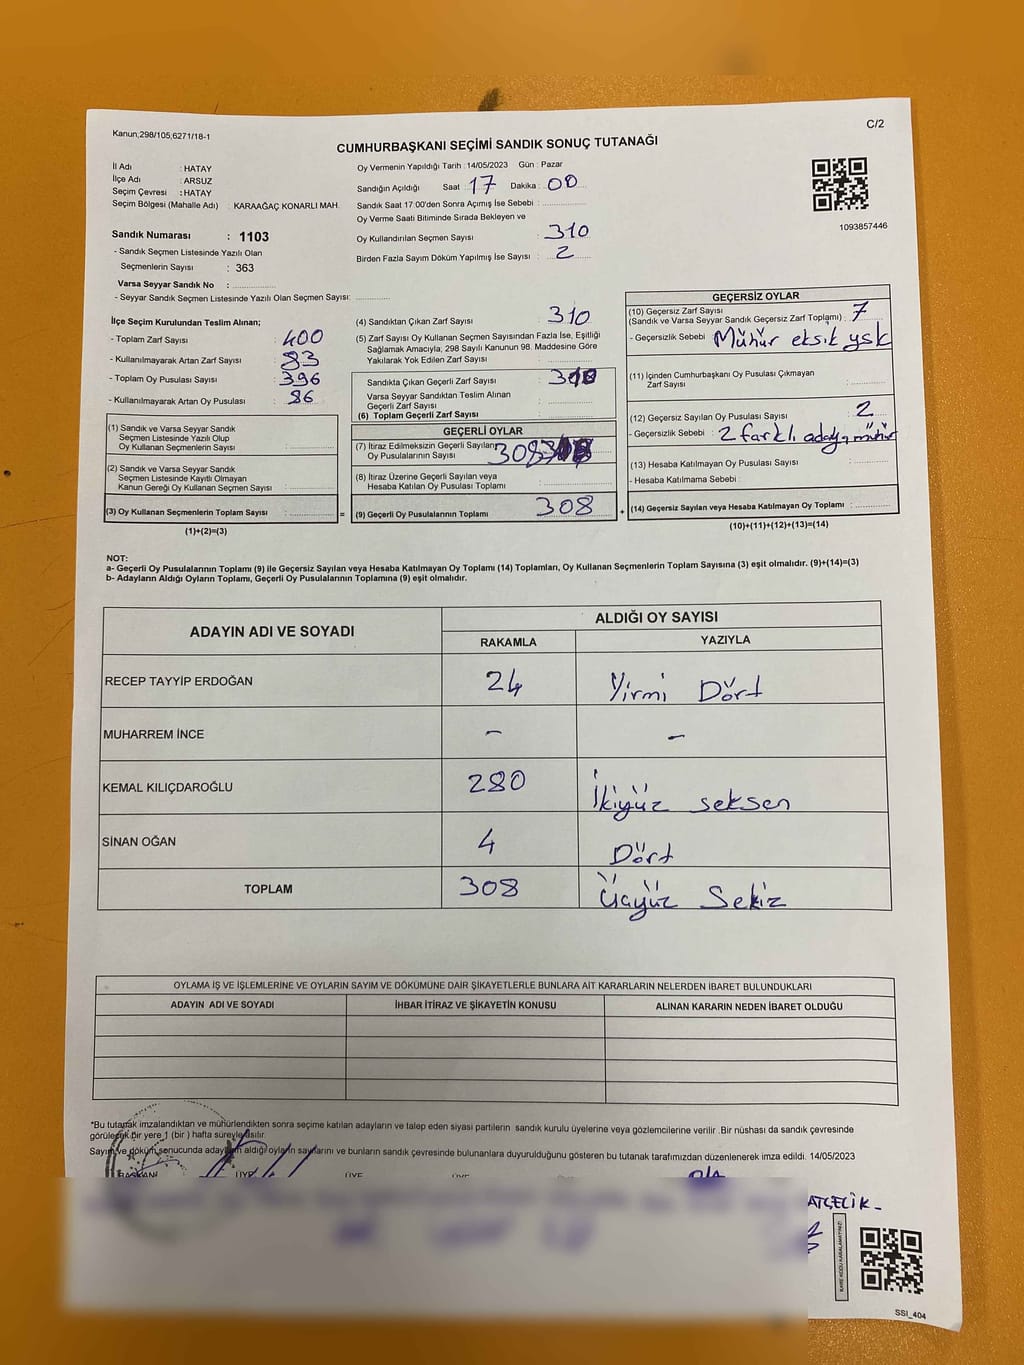 Kanun;298/105;6271/18-1
C/2
CUMHURBAŞKANI SEÇİMİ SANDIK SONUÇ TUTANAĞI
İl Adı : HATAY
İlçe Adı : ARSUZ
Seçim Çevresi : HATAY
Seçim Bölgesi (Mahalle Adı) : KARAAĞAÇ KONARLI MAH.
Sandık Numarası : 1103
- Sandık Seçmen Listesinde Yazılı Olan
Seçmenlerin Sayısı : 363
Varsa Seyyar Sandık No :
- Seyyar Sandık Seçmen Listesinde Yazılı Olan Seçmen Sayısı:
Oy Vermenin Yapıldığı Tarih : 14/05/2023 Gün : Pazar
Sandığın Açıldığı Saat : 17 Dakika : 00
Sandık Saat 17:00'den Sonra Açımış İse Sebebi :
Oy Verme Saati Bitiminde Sırada Bekleyen ve
Oy Kullandırılan Seçmen Sayısı : 310
Birden Fazla Sayım Döküm Yapılmış İse Sayısı : 2
1093857446
İlçe Seçim Kurulundan Teslim Alınan;
- Toplam Zarf Sayısı : 400
- Kullanılmayarak Artan Zarf Sayısı : 83
- Toplam Oy Pusulası Sayısı : 396
- Kullanılmayarak Artan Oy Pusulası : 86
(1) Sandık ve Varsa Seyyar Sandık
Seçmen Listesinde Yazılı Olup
Oy Kullanan Seçmenlerin Sayısı :
(2) Sandık ve Varsa Seyyar Sandık
Seçmen Listesinde Kayıtlı Olmayan
Kanun Gereği Oy Kullanan Seçmen Sayısı :
(3) Oy Kullanan Seçmenlerin Toplam Sayısı :
(1)+(2)=(3)
(4) Sandıktan Çıkan Zarf Sayısı : 310
(5) Zarf Sayısı Oy Kullanan Seçmen Sayısından Fazla İse, Eşitliği
Sağlamak Amacıyla, 298 Sayılı Kanunun 98. Maddesine Göre
Yakılarak Yok Edilen Zarf Sayısı :
Sandıkta Çıkan Geçerli Zarf Sayısı :
Varsa Seyyar Sandıktan Teslim Alınan
Geçerli Zarf Sayısı :
(6) Toplam Geçerli Zarf Sayısı :
GEÇERLİ OYLAR
(7) İtiraz Edilmeksizin Geçerli Sayılan
Oy Pusulalarının Sayısı 308
(8) İtiraz Üzerine Geçerli Sayılan veya
Hesaba Katılan Oy Pusulası Toplamı :
= (9) Geçerli Oy Pusulalarının Toplamı : 308 +
GEÇERSİZ OYLAR
(10) Geçersiz Zarf Sayısı
(Sandık ve Varsa Seyyar Sandık Geçersiz Zarf Toplamı) : 7
- Geçersizlik Sebebi : Mühür eksik ysk
(11) İçinden Cumhurbaşkanı Oy Pusulası Çıkmayan
Zarf Sayısı :
(12) Geçersiz Sayılan Oy Pusulası Sayısı : 2
- Geçersizlik Sebebi : 2 farklı adaya mühür
(13) Hesaba Katılmayan Oy Pusulası Sayısı :
- Hesaba Katılmama Sebebi :
(14) Geçersiz Sayılan veya Hesaba Katılmayan Oy Toplamı :
(10)+(11)+(12)+(13)=(14)
NOT:
a- Geçerli Oy Pusulalarının Toplamı (9) ile Geçersiz Sayılan veya Hesaba Katılmayan Oy Toplamı (14) Toplamları, Oy Kullanan Seçmenlerin Toplam Sayısına (3) eşit olmalıdır. (9)+(14)=(3)
b- Adayların Aldığı Oyların Toplamı, Geçerli Oy Pusulalarının Toplamına (9) eşit olmalıdır.
ADAYIN ADI VE SOYADI ALDIĞI OY SAYISI
RAKAMLA YAZIYLA
RECEP TAYYİP ERDOĞAN 24 Yirmi Dört
MUHARREM İNCE - -
KEMAL KILIÇDAROĞLU 280 İkiyüz seksen
SİNAN OĞAN 4 Dört
TOPLAM 308 Üçyüz Sekiz
OYLAMA İŞ VE İŞLEMLERİNE VE OYLARIN SAYIM VE DÖKÜMÜNE DAİR ŞİKAYETLERLE BUNLARA AİT KARARLARIN NELERDEN İBARET BULUNDUKLARI
ADAYIN ADI VE SOYADI İHBAR İTİRAZ VE ŞİKAYETİN KONUSU ALINAN KARARIN NEDEN İBARET OLDUĞU
*Bu tutanak imzalandıktan ve mühürlendikten sonra seçime katılan adayların ve talep eden siyasi partilerin sandık kurulu üyelerine veya gözlemcilerine verilir .Bir nüshası da sandık çevresinde
görülecek bir yere 1 (bir ) hafta süreyle asılır.
Sayım ve döküm sonucunda adayların aldığı oyların sayılarını ve bunların sandık çevresinde bulunanlara duyurulduğunu gösteren bu tutanak tarafımızdan düzenlenerek imza edildi. 14/05/2023
BAŞKAN ÜYE ÜYE ÜYE
SSI_404